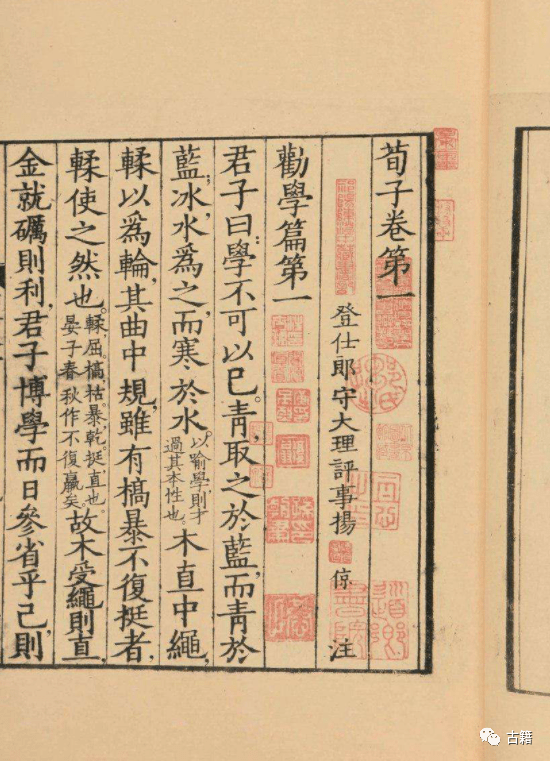 荀子卷第一
登仕郎守大理評事揚倞注
勸學篇第一
君子曰：學不可以已。青，取之於藍，而青於
藍；冰，水爲之，而寒於水。以喻學，則才過其本性也。木直中繩，
輮以爲輪，其曲中規，雖有槁暴不復挺者，
輮使之然也。輮，屈。槁，枯。暴，乾。挺，直也。晏子春秋作不復贏矣。故木受繩則直，
金就礪則利，君子博學而日參省乎己，則
古籍